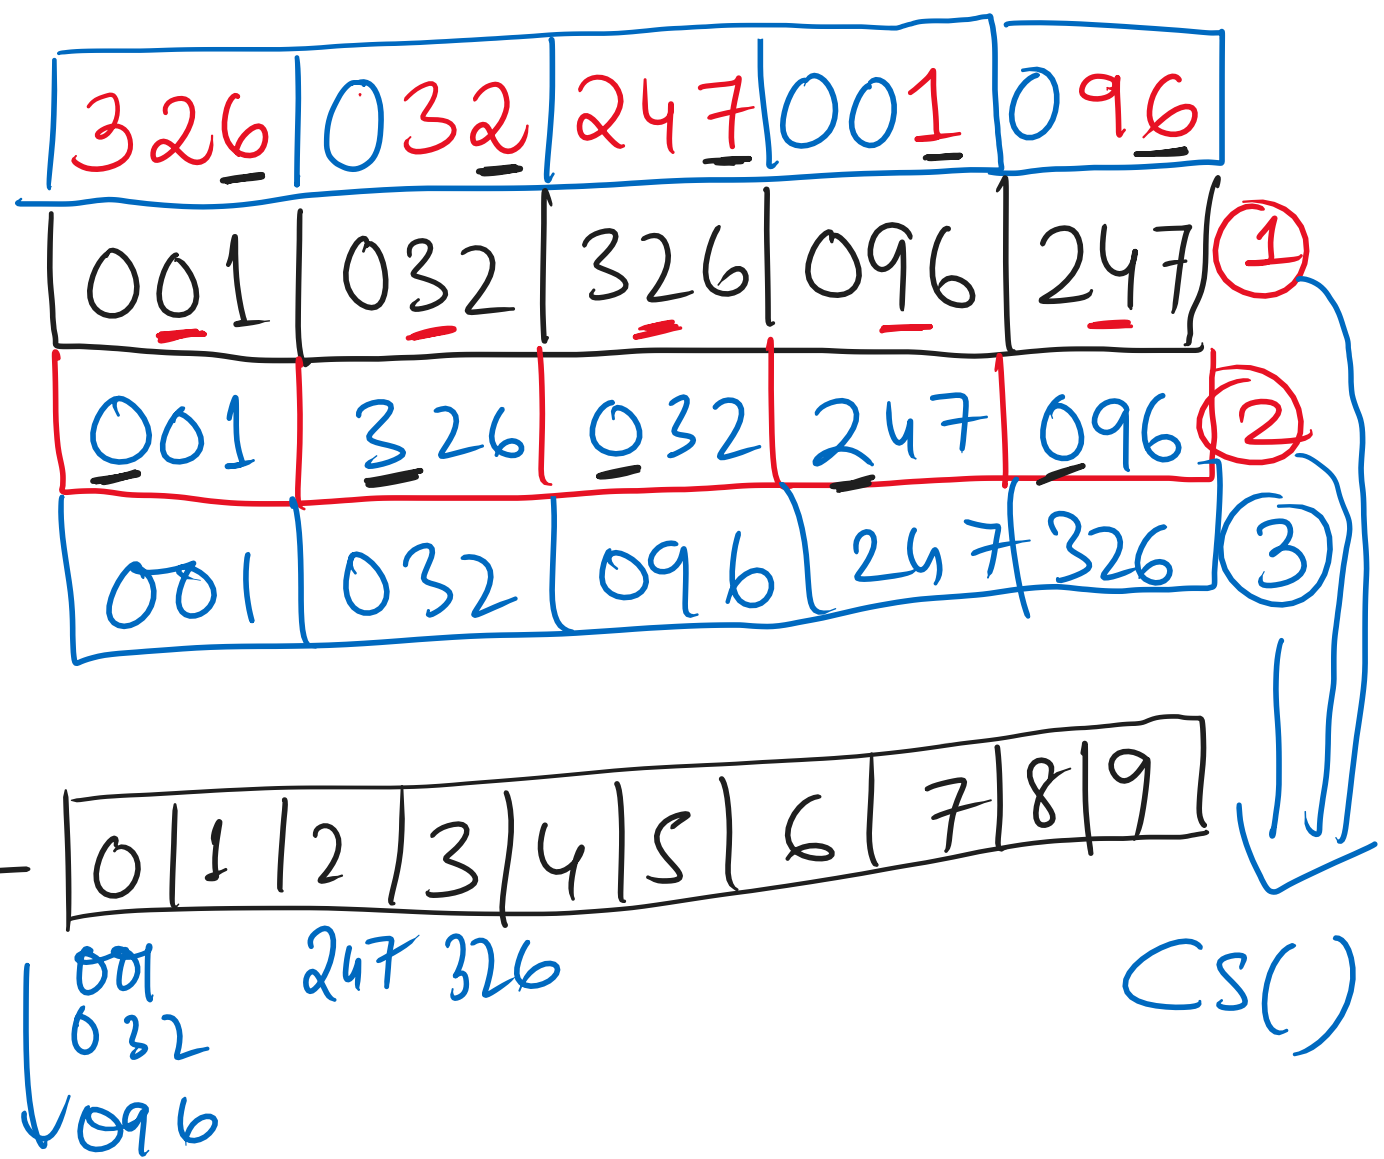 326 032 247 001 096
001 032 326 096 247 1
001 326 032 247 096 2
001 032 096 247 326 3
0 1 2 3 4 5 6 7 8 9
001 247 326
032
096
CS()